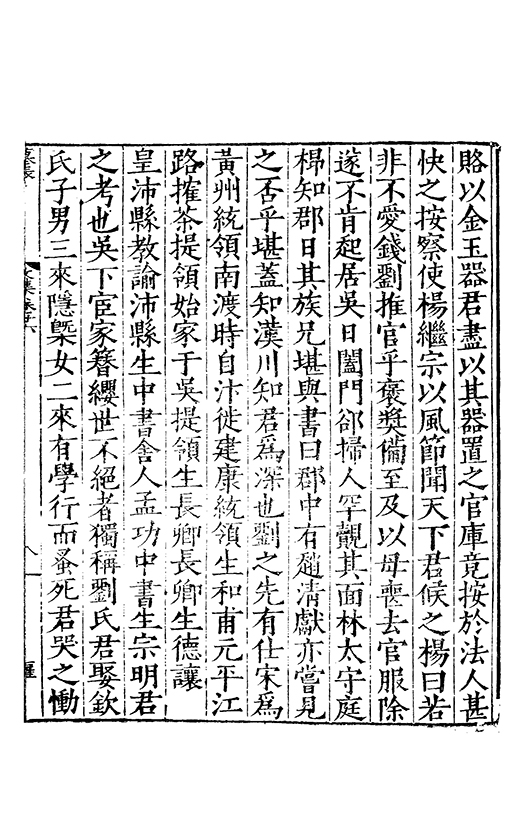 賂以金玉器君盡以其器置之官庫竟按於法人甚
快之按察使楊繼宗以風節聞天下君候之楊曰若
非不愛錢劉推官乎褒奬備至及以母喪去官服除
遂不肯起居吳日闔門郤掃人罕覿其面林太守庭
㭿知郡日其族兄堪與書曰郡中有趙清獻亦嘗見
之否乎堪蓋知漢川知君爲深也劉之先有仕宋爲
黃州統領南渡時自汴徙建康統領生和甫元平江
路搉茶提領始家于吳提領生長卿長卿生德讓
皇沛縣教諭沛縣生中書舍人孟功中書生宗明君
之考也吳下宦家簪纓世不絕者獨稱劉氏君娶欽
氏子男三來隱㮣女二來有學行而蚤死君哭之慟